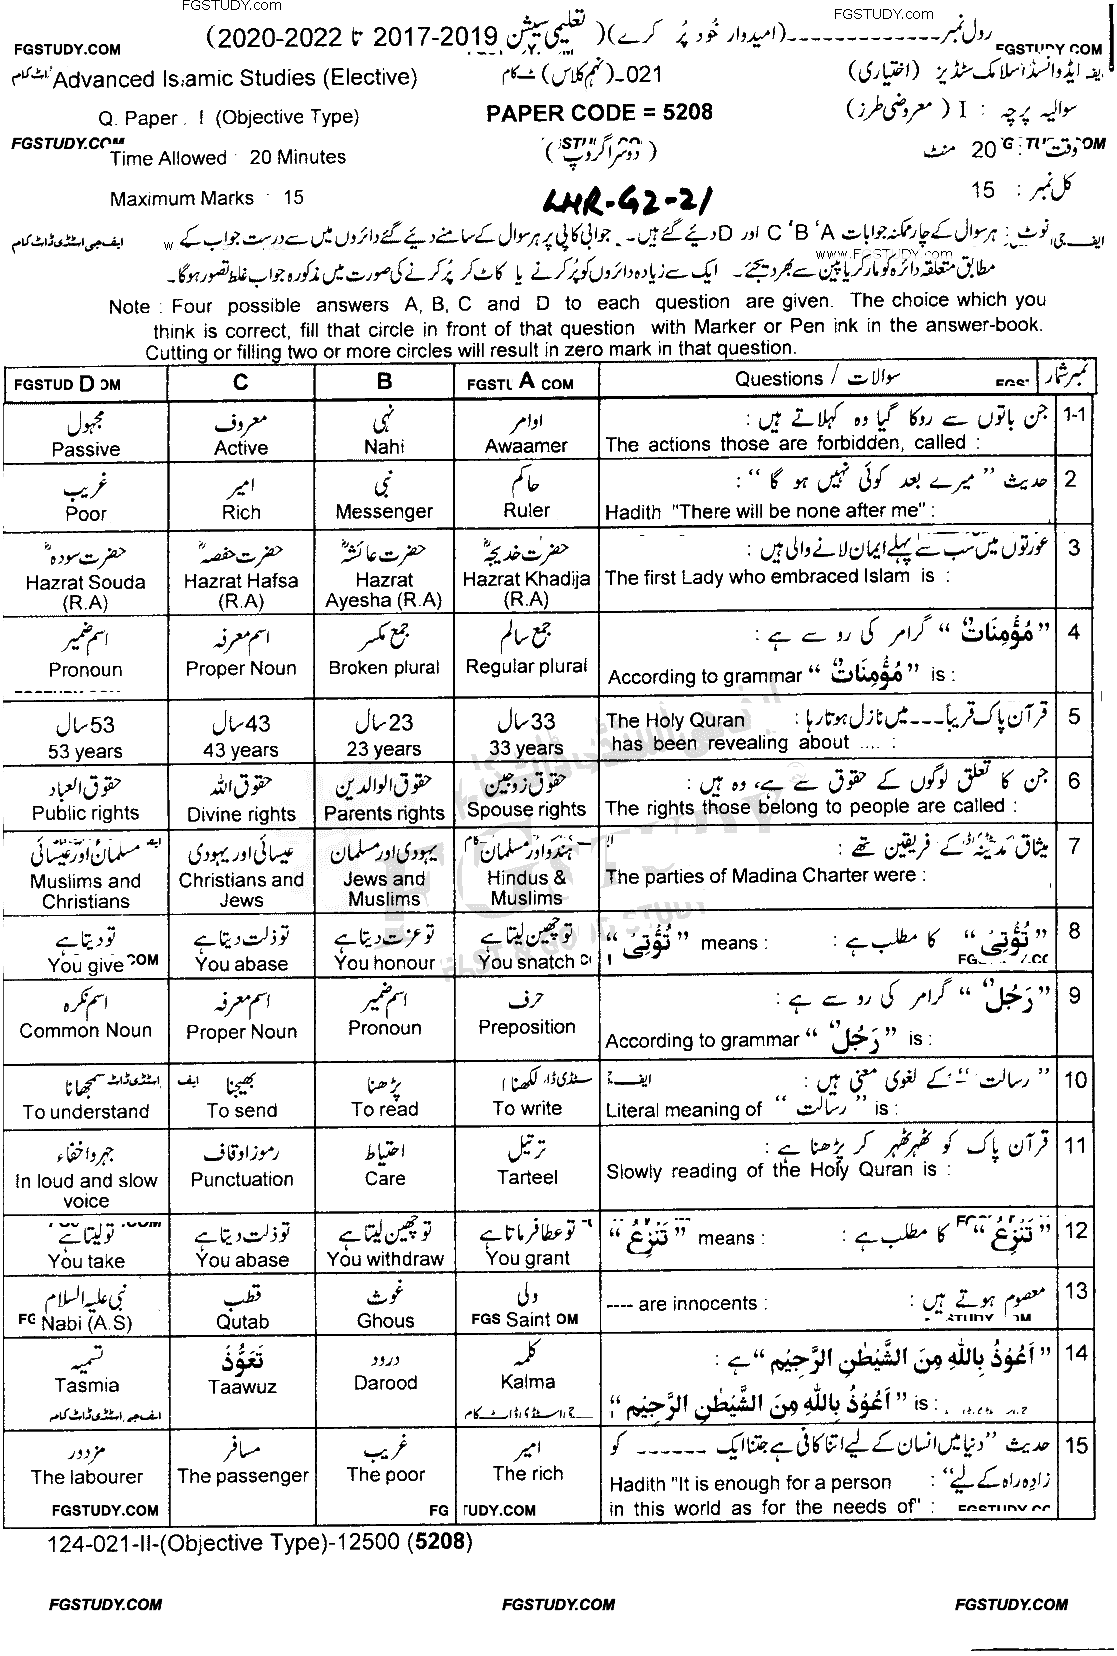 FGSTUDY.COM
FGSTUDY.COM
(2020-2022 تا 2017-2019 تعلیمی سیشن) (امیدوار خود پُر کرے)-------------رول نمبر
FGSTUDY.COM
Advanced Islamic Studies (Elective) 021-(نہم کلاس) ایڈوانسڈ اسلامک سٹڈیز (اختیاری)
Q. Paper : I (Objective Type) PAPER CODE = 5208 سوالیہ پرچہ : I (معروضی طرز)
FGSTUDY.COM
Time Allowed : 20 Minutes (دوسرا گروپ) وقت : 20 منٹ
Maximum Marks : 15 LHR-G2-21 کل نمبر : 15
نوٹ : ہر سوال کے چار ممکنہ جوابات A ،B ،C اور D دیئے گئے ہیں۔ جوابی کاپی پر ہر سوال کے سامنے دیئے گئے دائروں میں سے درست جواب کے
مطابق متعلقہ دائرہ کو مارکر یا پین سے بھر دیجئے۔ ایک سے زیادہ دائروں کو پُر کرنے یا کاٹ کر پُر کرنے کی صورت میں مذکورہ جواب غلط تصور ہوگا۔
www.FGSTUDY.com
Note : Four possible answers A, B, C and D to each question are given. The choice which you
think is correct, fill that circle in front of that question with Marker or Pen ink in the answer-book.
Cutting or filling two or more circles will result in zero mark in that question.
D C B A Questions / سوالات نمبر شمار
مجہول معروف نہی اوامر جن باتوں سے روکا گیا وہ کہلاتے ہیں : 1-1
Passive Active Nahi Awaamer The actions those are forbidden, called :
غریب امیر نبی حاکم حدیث " میرے بعد کوئی نہیں ہو گا " : 2
Poor Rich Messenger Ruler Hadith "There will be none after me" :
حضرت سودہؓ حضرت حفصہؓ حضرت عائشہؓ حضرت خدیجہؓ عورتوں میں سب سے پہلے ایمان لانے والی ہیں : 3
Hazrat Souda Hazrat Hafsa Hazrat Hazrat Khadija The first Lady who embraced Islam is :
(R.A) (R.A) Ayesha (R.A) (R.A)
اسم ضمیر اسم معرفہ جمع مکسر جمع سالم " مُؤْمِنَاتٌ " گرامر کی رو سے ہے : 4
Pronoun Proper Noun Broken plural Regular plural According to grammar " مُؤْمِنَاتٌ " is :
53سال 43سال 23سال 33سال The Holy Quran قرآن پاک قریباً ۔۔۔ میں نازل ہوتا رہا : 5
53 years 43 years 23 years 33 years has been revealing about .... :
حقوق العباد حقوق اللہ حقوق الوالدین حقوق زوجین جن کا تعلق لوگوں کے حقوق سے ہے، وہ ہیں : 6
Public rights Divine rights Parents rights Spouse rights The rights those belong to people are called :
مسلمان اور عیسائی عیسائی اور یہودی یہودی اور مسلمان ہندو اور مسلمان میثاق مدینہ کے فریقین تھے : 7
Muslims and Christians and Jews and Hindus & The parties of Madina Charter were :
Christians Jews Muslims Muslims
تو دیتا ہے تو ذلت دیتا ہے تو عزت دیتا ہے تو چھین لیتا ہے " تُؤْتِیْ " means : " تُؤْتِیْ " کا مطلب ہے : 8
You give You abase You honour You snatch
اسم نکرہ اسم معرفہ اسم ضمیر حرف " رَجُلٌ " گرامر کی رو سے ہے : 9
Common Noun Proper Noun Pronoun Preposition According to grammar " رَجُلٌ " is :
سمجھانا بھیجنا پڑھنا لکھنا " رسالت " کے لغوی معنی ہیں : 10
To understand To send To read To write Literal meaning of " رسالت " is :
جہر و اخفاء رموز اوقاف احتیاط ترتیل قرآن پاک کو ٹھہر ٹھہر کر پڑھنا ہے : 11
In loud and slow Punctuation Care Tarteel Slowly reading of the Holy Quran is :
voice
تو لیتا ہے تو ذلت دیتا ہے تو چھین لیتا ہے تو عطا فرماتا ہے " تَنْزِعُ " means : " تَنْزِعُ " کا مطلب ہے : 12
You take You abase You withdraw You grant
نبی علیہ السلام قطب غوث ولی ---- are innocents : معصوم ہوتے ہیں : 13
Nabi (A.S) Qutab Ghous Saint
تسمیہ تَعَوُّذ درود کلمہ " اَعُوْذُ بِاللّٰهِ مِنَ الشَّیْطٰنِ الرَّجِیْمِ " ہے : 14
Tasmia Taawuz Darood Kalma " اَعُوْذُ بِاللّٰهِ مِنَ الشَّیْطٰنِ الرَّجِیْمِ " is :
مزدور مسافر غریب امیر حدیث " دنیا میں انسان کے لیے اتنا کافی ہے جتنا ایک ------ کو 15
The labourer The passenger The poor The rich Hadith "It is enough for a person زادِ راہ کے لیے " :
in this world as for the needs of" :
FGSTUDY.COM
124-021-II-(Objective Type)-12500 (5208)
FGSTUDY.COM FGSTUDY.COM FGSTUDY.COM